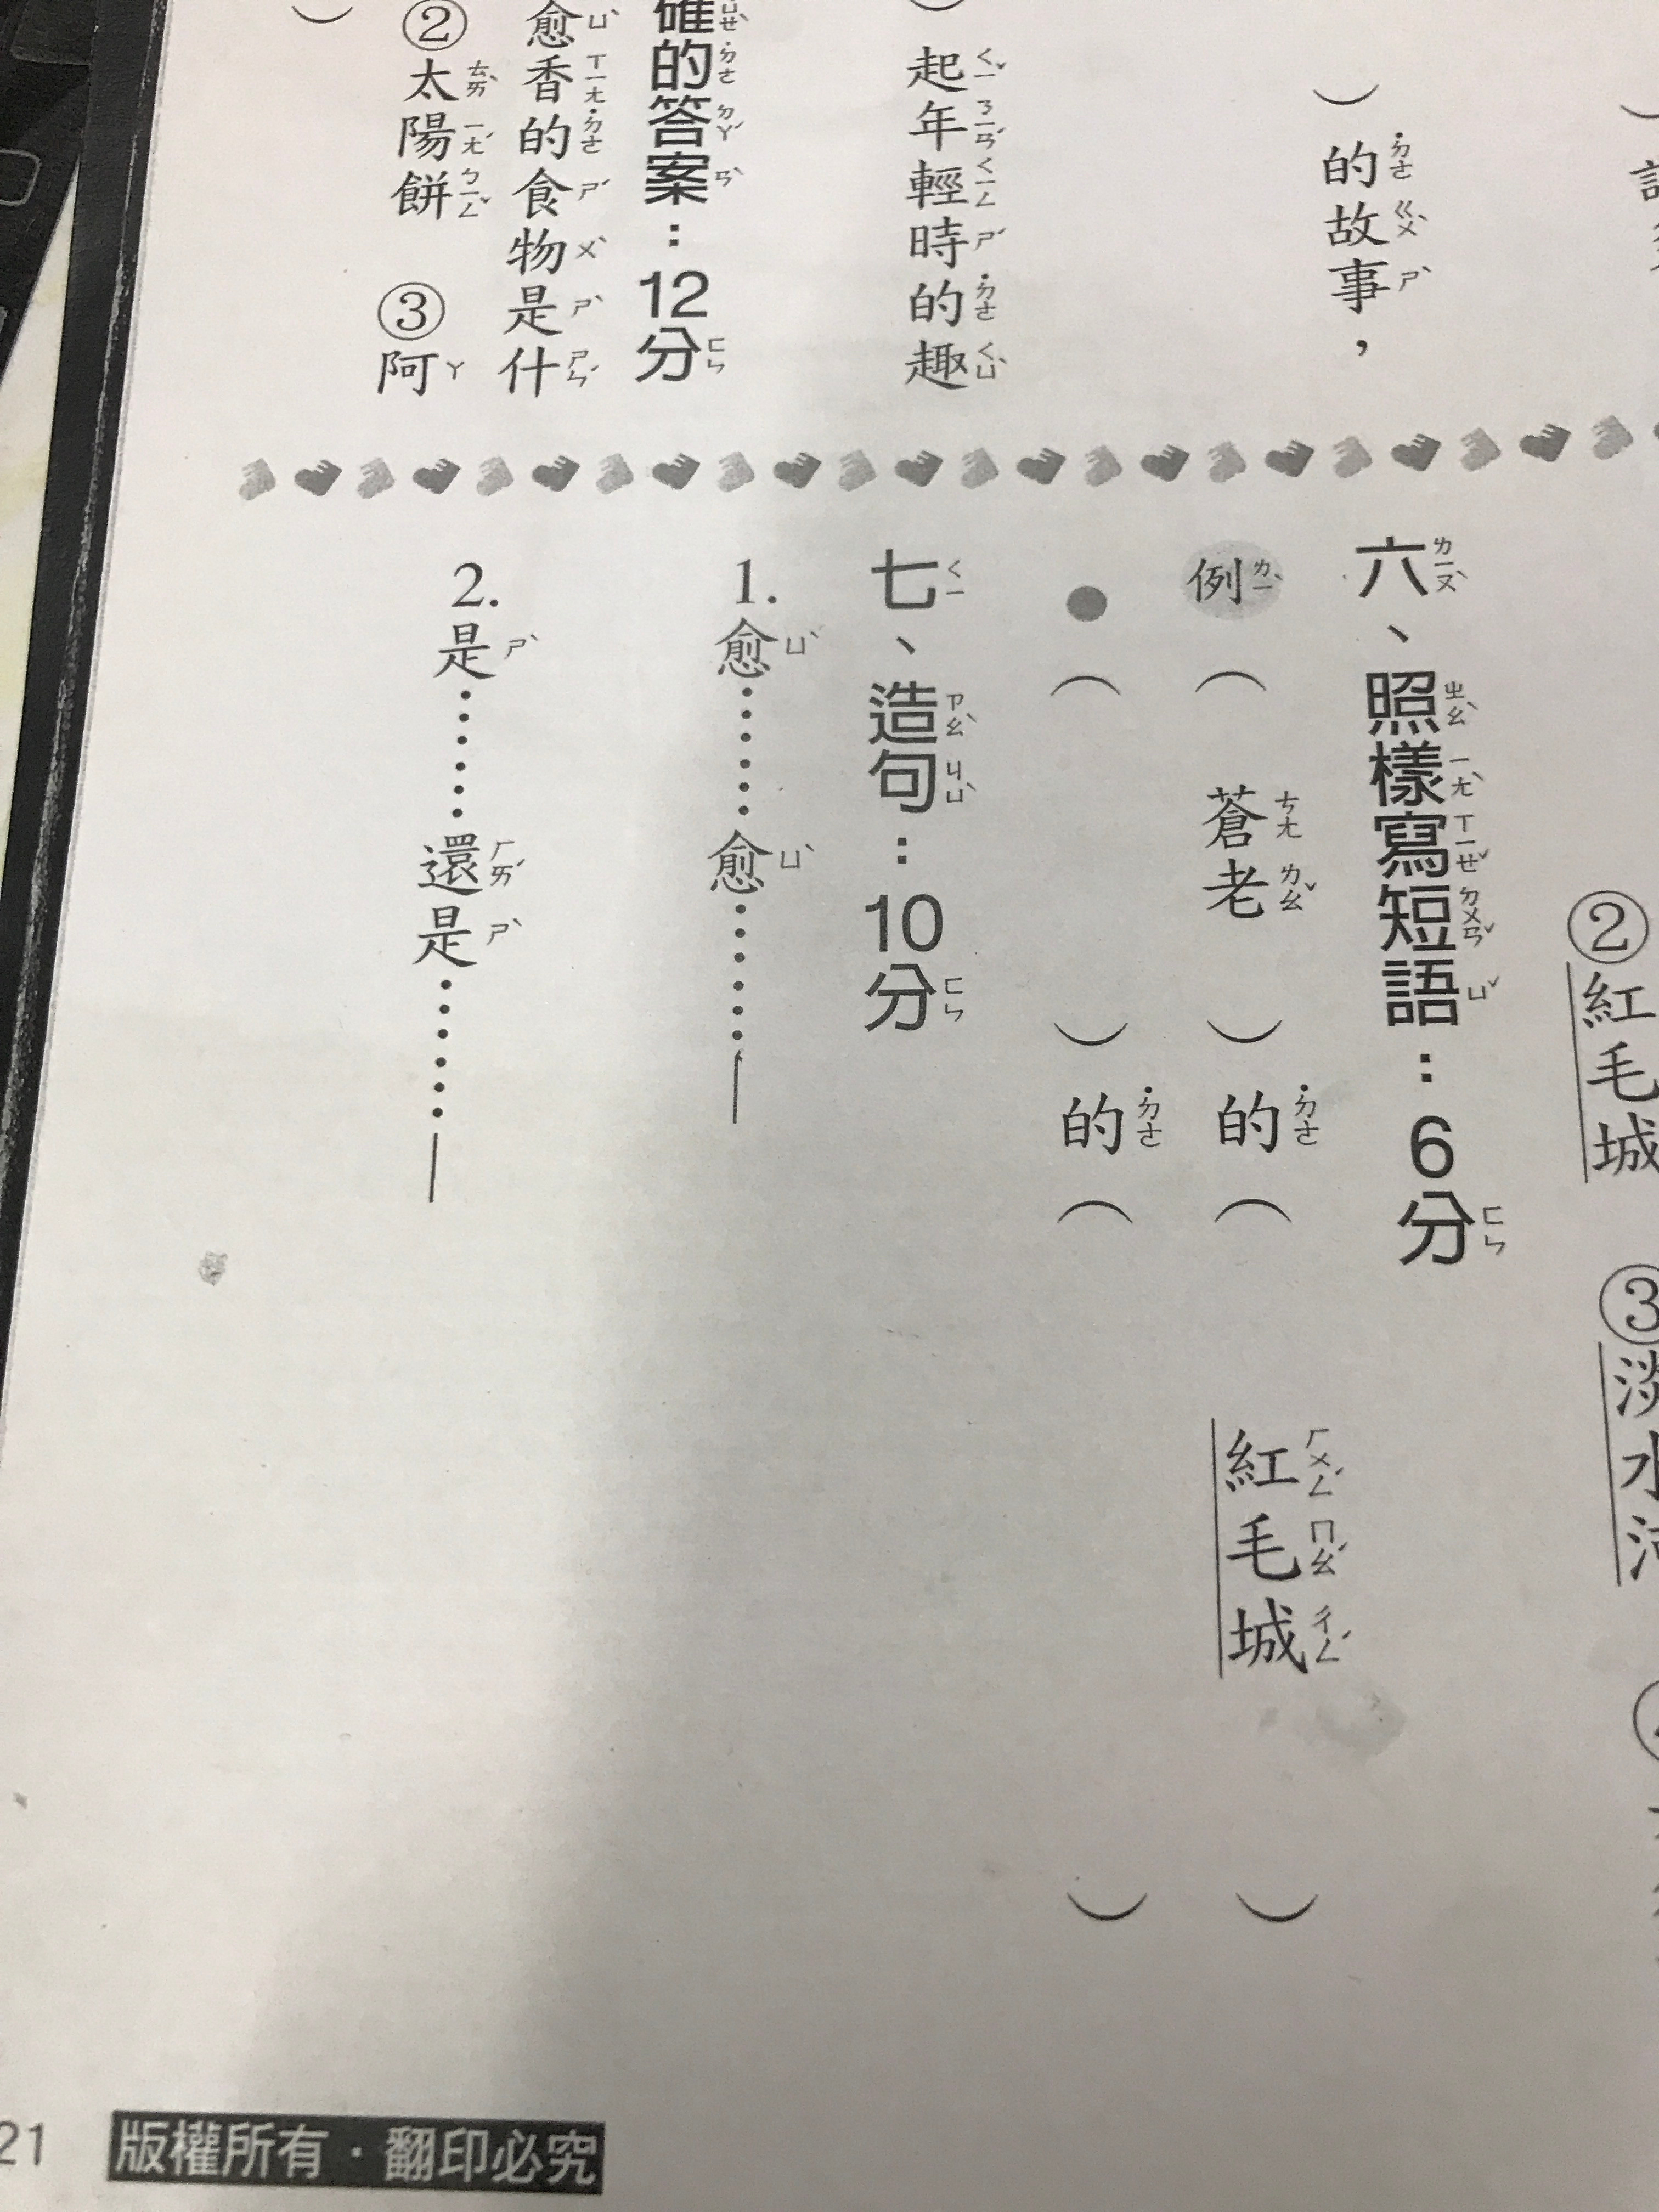 ）的故事，
）起年輕時的趣
確的答案：12分
愈香的食物是什
②太陽餅　③阿
②紅毛城　③淡水河
六、照樣寫短語：6分
例（蒼老）的（紅毛城）
●（　）的（　）
七、造句：10分
1.愈……愈……—
2.是……還是……—
21
版權所有・翻印必究